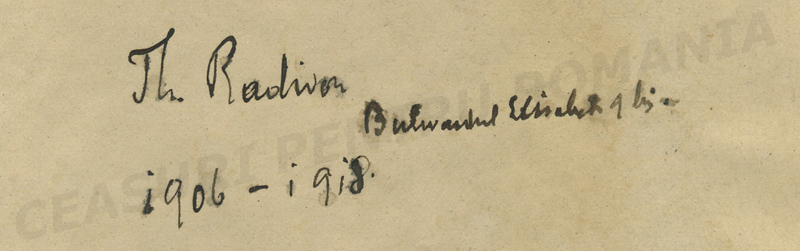 Th. Radivon
Bulevardul Elisabeta 9 bis
1906 - 1918.
CEASURI PENTRU ROMANIA